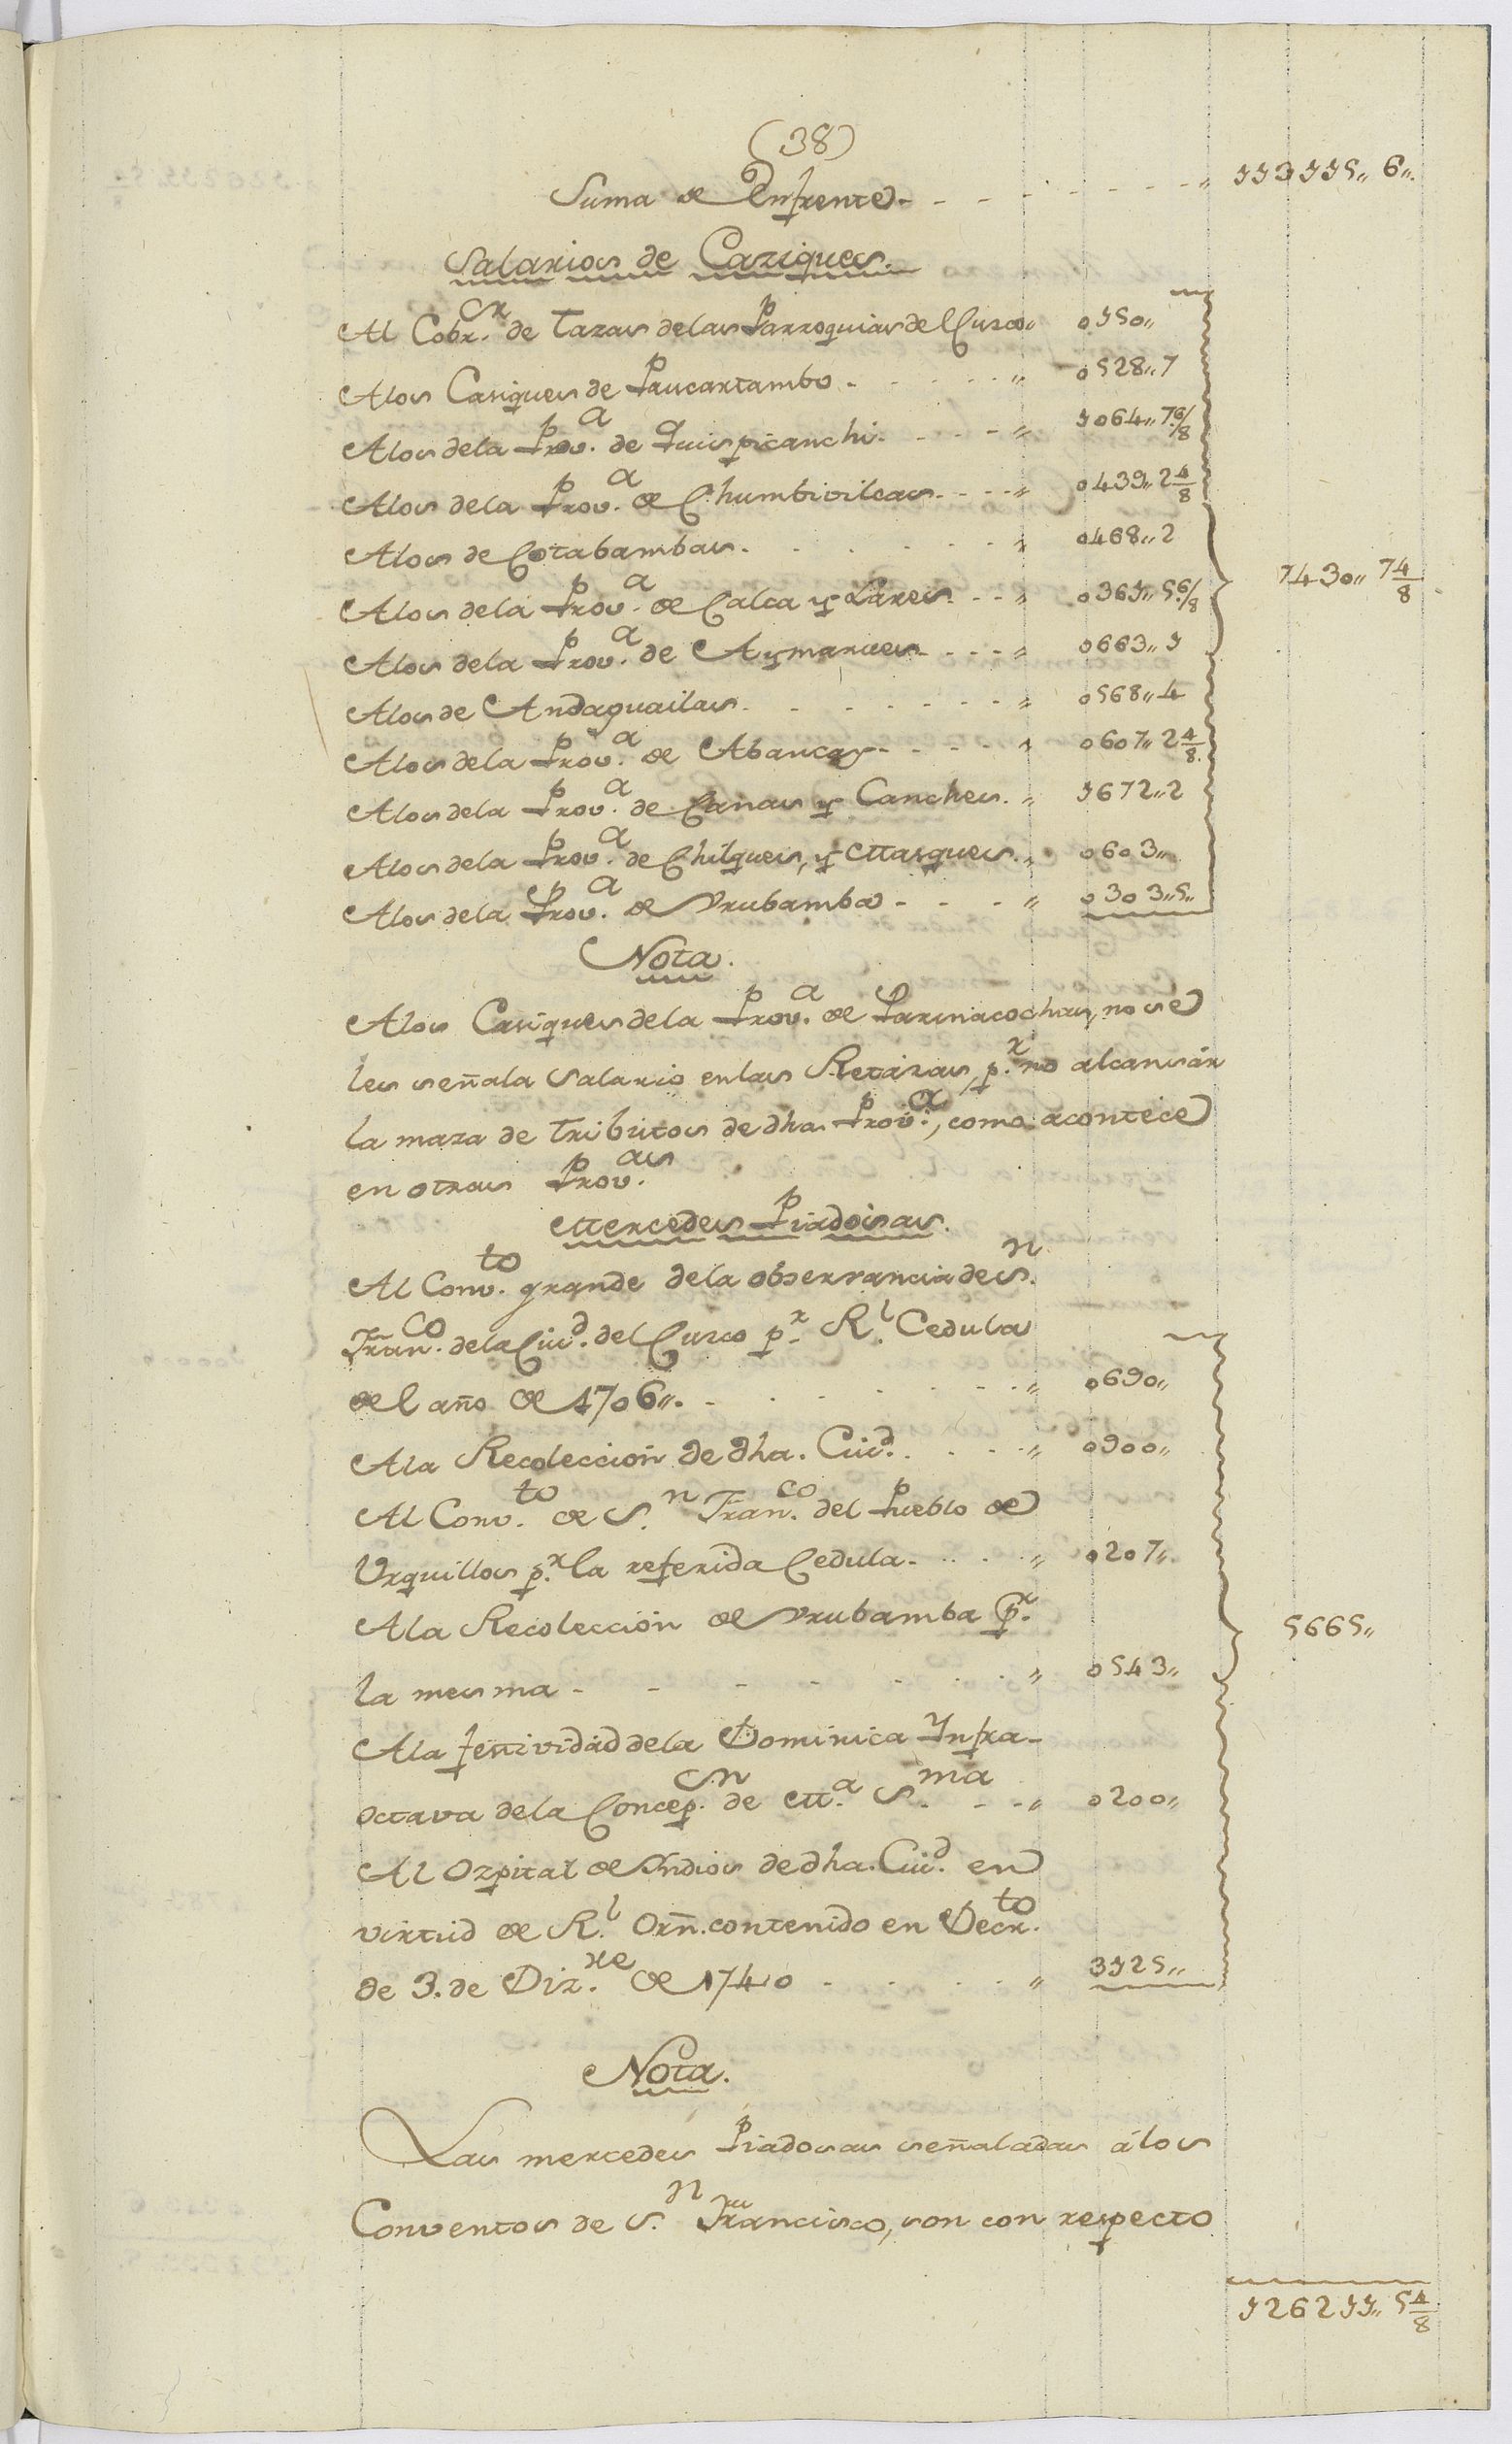 (38)
Suma de Enfrente - - - - - - - " 113115" 6".
Salarios de Caziques.
Al Cobr.or de Tazas delas Parroquias del Cuzco" 0150"
Alos Casiques de Paucartambo - - - - - " 0528"7
Alos dela Prov.a de Quispicanchi - - - - " 1064"7 6/8
Alos dela Prov.a de Chumbivilcas - - - - " 0439"2 4/8
Alos de Cotabambas. - - - - - - " 0468"2
Alos dela Prov.a de Calca y Lares. - - - " 0361"5 6/8
7430" 7 4/8
Alos dela Prov.a de Aymaraes - - - - " 0663"1
Alos de Andaguailas. - - - - - - - " 0568"4
Alos dela Prov.a de Abancay - - - - - " 0607"2 4/8
Alos dela Prov.a de Canas y Canches. " 1672"2
Alos dela Prov.a de Chilques, y Masques. " 0603"
Alos dela Prov.a de Vrubamba - - - - " 0303"5".
Nota.
Alos Casiques dela Prov.a de Parinacochas, no se
les señala Salario enlas Retazas, p.r no alcansár
la maza de Tributos de dha. Prov.a, como acontece
en otras Prov.as
Mercedes Piadosas.
Al Conv.to grande dela observancia de S.n
Fran.co dela Ciud. del Cuzco p.r R.l Cedula
del año de 1706". - - - - - - " 0690"
Ala Recoleccion de dha. Ciud. - - - - " 0900"
Al Conv.to de S.n Fran.co del Pueblo de
Urquillos p.r la referida Cedula - - - - " 0207"
Ala Recoleccion de Vrubamba p.r
5665"
la mesma - - - - - - - " 0543"
Ala festividad dela Dominica Infra-
octava dela Concep.on de M.a S.ma - - - " 0200"
Al Ozpital de Indios de dha. Ciud. en
virtud de R.l Orñ. contenido en Decr.to
de 3. de Diz.re de 1740 - - - - - " 3125"
Nota.
Las mercedes Piadosas señaladas á los
Conventos de S.n Francisco, son con respecto
126211" 5 4/8